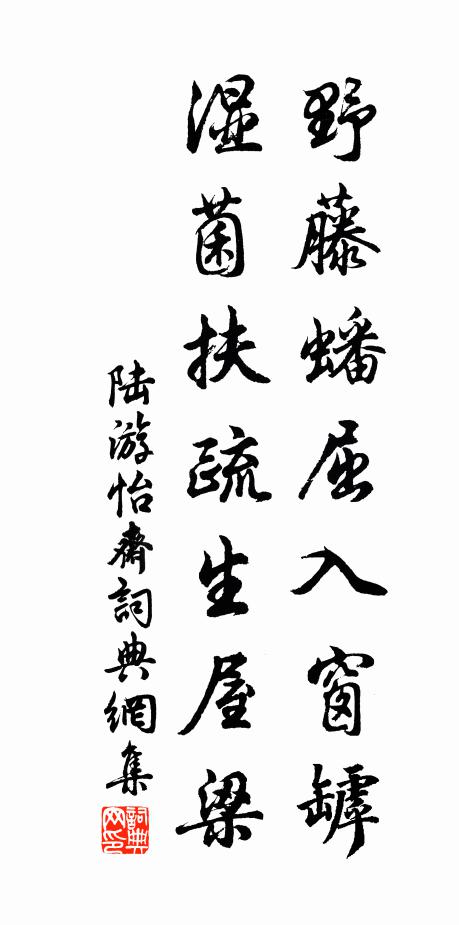 野藤蟠屈入窗罅
湿菌扶疏生屋梁
陆游怡齋詞典網集
詞典网印